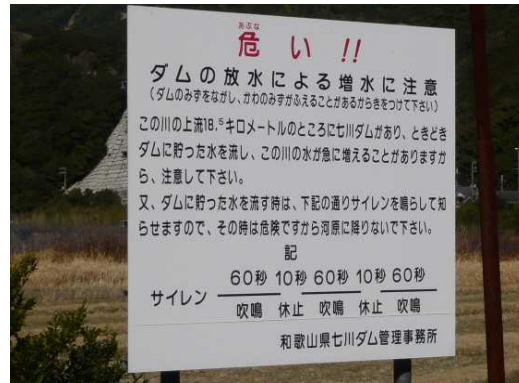 あぶな
危い!!
ダムの放水による増水に注意
(ダムのみずをながし、かわのみずがふえることがあるからきをつけて下さい)
この川の上流18.⁵キロメートルのところに七川ダムがあり、ときどき
ダムに貯った水を流し、この川の水が急に増えることがありますか
ら、注意して下さい。
又、ダムに貯った水を流す時は、下記の通りサイレンを鳴らして知
らせますので、その時は危険ですから河原に降りないで下さい。
記
60秒 10秒 60秒 10秒 60秒
サイレン
吹鳴 休止 吹鳴 休止 吹鳴
和歌山県七川ダム管理事務所